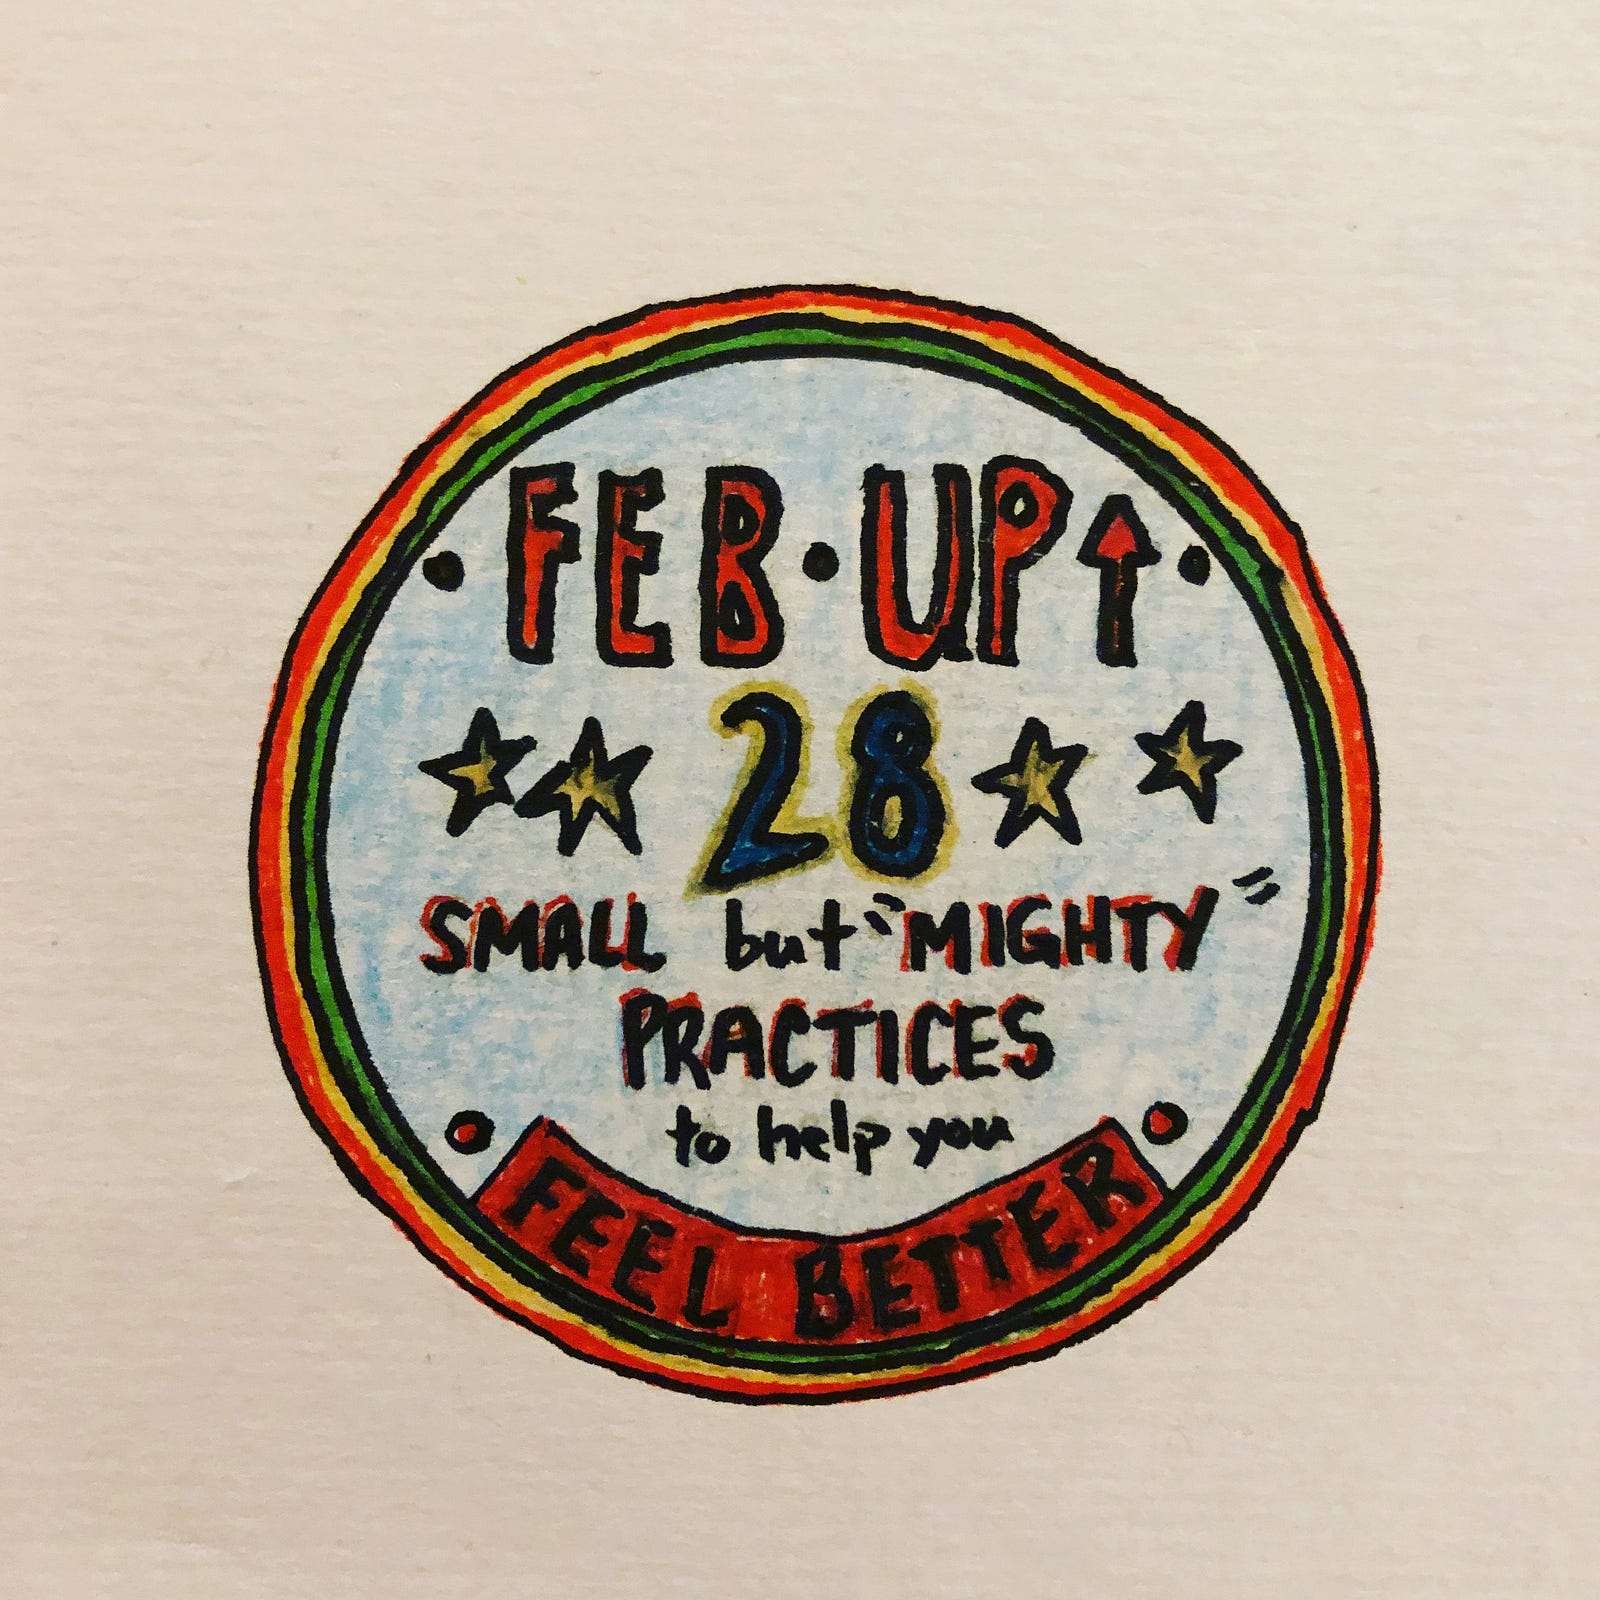 FEB·UP↑
28
SMALL but "MIGHTY"
PRACTICES
to help you
FEEL BETTER